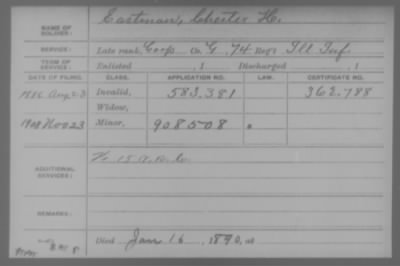 NAME OF SOLDIER: Eastman, Chester H.
SERVICE: Late rank, Corp Co. G, 74 Reg't Ill Inf.
TERM OF SERVICE: Enlisted , 1 Discharged , 1
DATE OF FILING. CLASS. APPLICATION NO. LAW. CERTIFICATE NO.
1886 Aug 23 Invalid, 583.381 362.788
Widow,
1908 Nov 23 Minor, 908508 "
ADDITIONAL SERVICES:
REMARKS:
Died Jan 16, 1890, at